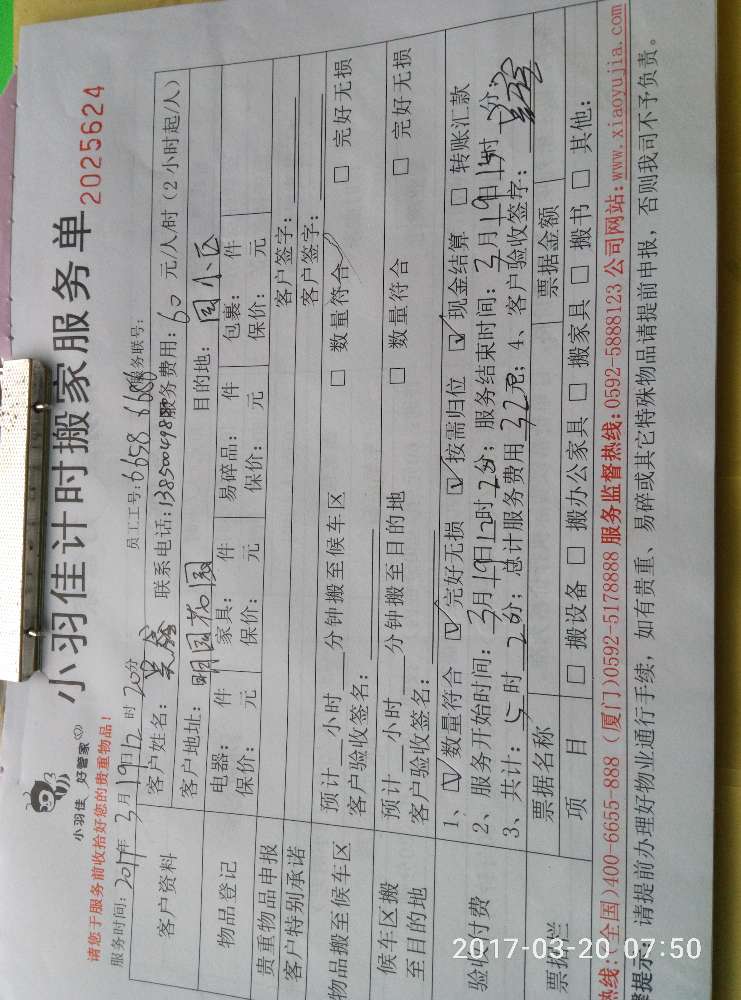 小羽佳计时搬家服务单
2025624
小羽佳 好管家
请您于服务前收拾好您的贵重物品!
服务时间: 2017年 3月19日12时20分 员工工号: 6658 6686 服务联号:
客户资料
客户姓名: 联系电话: 服务费用: 60 元/人/时(2小时起/人)
客户地址: 明园花园 目的地: 园小区
物品登记
电器: 件 家具: 件 易碎品: 件 包裹: 件
保价: 元 保价: 元 保价: 元 保价: 元
贵重物品申报 客户签字:
客户特别承诺 客户签字:
物品搬至候车区
预计__小时__分钟搬至候车区 □ 数量符合 □ 完好无损
客户验收签名:
候车区搬至目的地
预计__小时__分钟搬至目的地 □ 数量符合 □ 完好无损
客户验收签名:
验收付费
1、☑ 数量符合 ☑ 完好无损 ☑ 按需归位 ☑ 现金结算 □ 转账汇款
2、服务开始时间: 3月19日12时20分; 服务结束时间: 3月19日 时 分;
3、共计: 5时20分; 总计服务费用 320元; 4、客户验收签字:
票据栏
票据名称 票据金额
项目 □ 搬设备 □ 搬办公家具 □ 搬家具 □ 搬书 □ 其他:
热线:(全国)400-6655-888 (厦门)0592-5178888 服务监督热线:0592-5888123 公司网站:www.xiaoyujia.com
提示: 请提前办理好物业通行手续, 如有贵重、易碎或其它特殊物品请提前申报, 否则我司不予负责。
2017-03-20 07:50